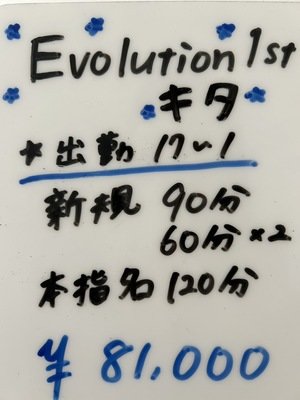 Evolution 1st
キタ
*出勤 17~1
新規 90分
60分×2
本指名 120分
¥ 81,000